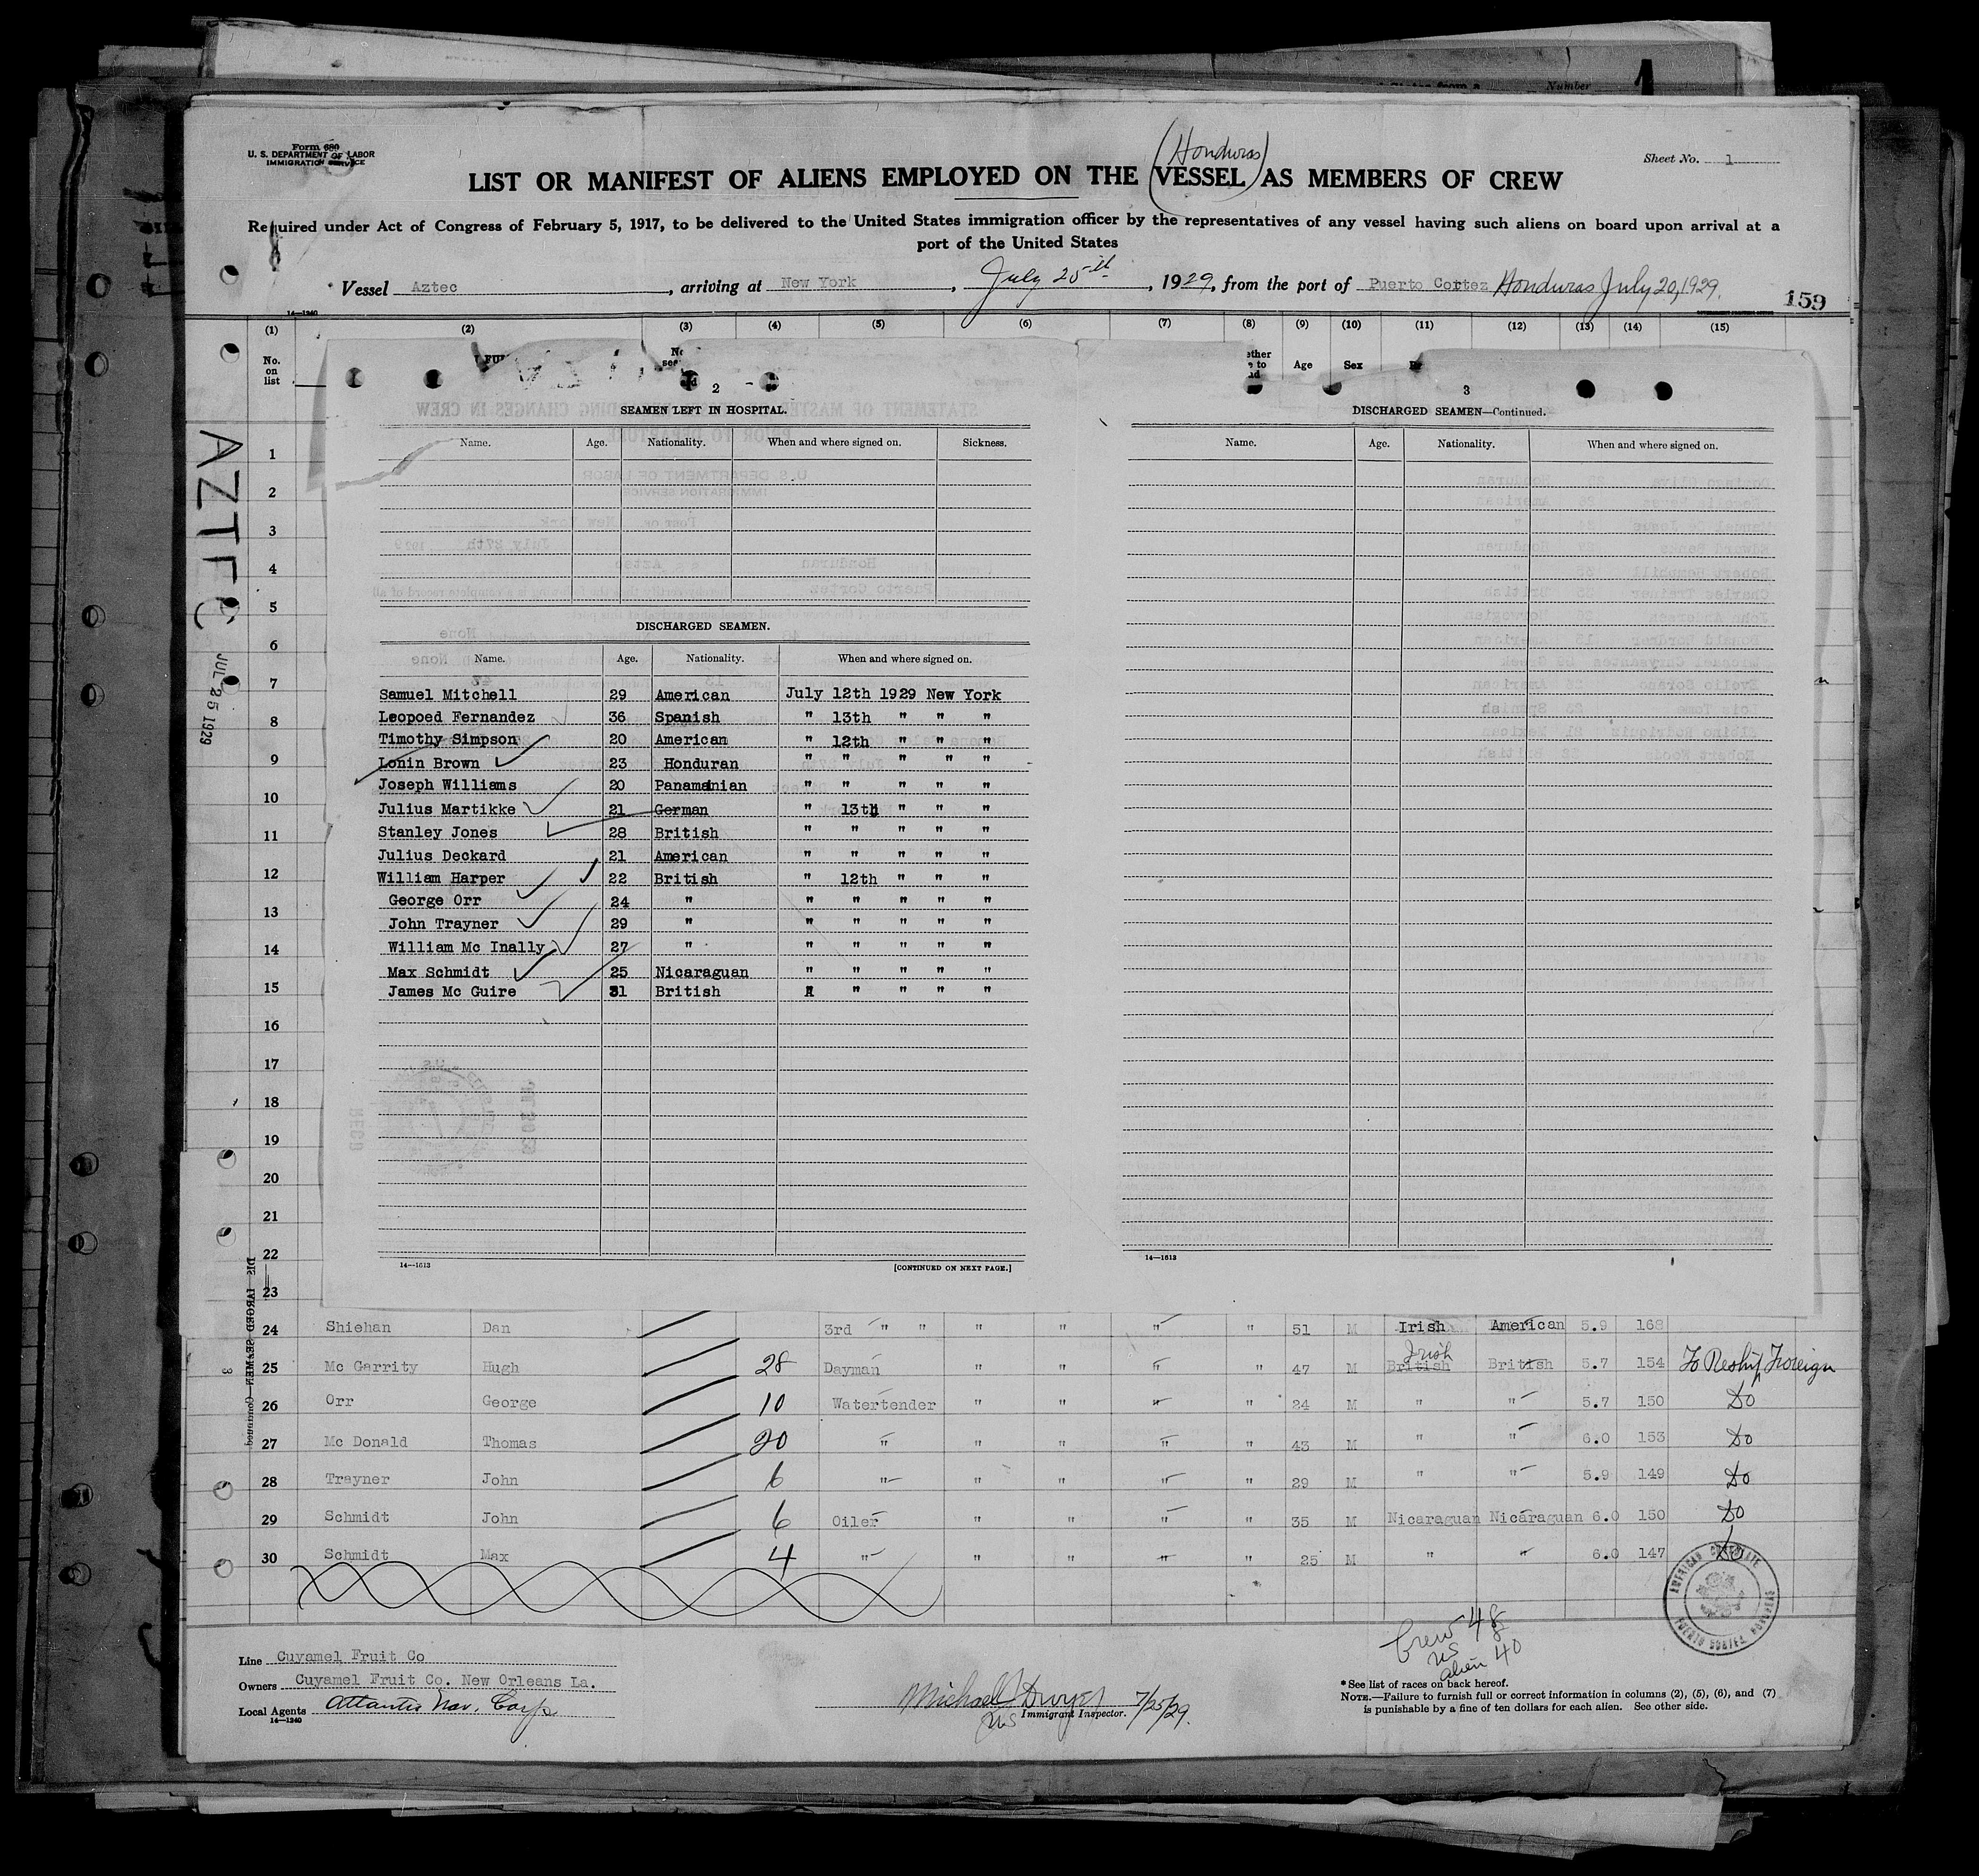 Number
1
Form 680
U. S. DEPARTMENT OF LABOR
IMMIGRATION SERVICE
Sheet No. 1
(Honduras)
LIST OR MANIFEST OF ALIENS EMPLOYED ON THE VESSEL AS MEMBERS OF CREW
Required under Act of Congress of February 5, 1917, to be delivered to the United States immigration officer by the representatives of any vessel having such aliens on board upon arrival at a
port of the United States
Vessel Aztec, arriving at New York, July 25th, 1929, from the port of Puerto Cortez Honduras July 20, 1929.
159
14—1240
(1) (2) (3) (4) (5) (6) (7) (8) (9) (10) (11) (12) (13) (14) (15)
No. on list
Age Sex
2
SEAMEN LEFT IN HOSPITAL.
Name. Age. Nationality. When and where signed on. Sickness.
DISCHARGED SEAMEN.
Name. Age. Nationality. When and where signed on.
Samuel Mitchell 29 American July 12th 1929 New York
Leopoed Fernandez 36 Spanish " 13th " " "
Timothy Simpson 20 American " 12th " " "
Lonin Brown 23 Honduran " " " " "
Joseph Williams 20 Panamanian " " " " "
Julius Martikke 21 German " 13th " " "
Stanley Jones 28 British " " " " "
Julius Deckard 21 American " " " " "
William Harper 22 British " 12th " " "
George Orr 24 " " " " " "
John Trayner 29 " " " " " "
William Mc Inally 27 " " " " " "
Max Schmidt 25 Nicaraguan " " " " "
James Mc Guire 31 British " " " " "
14—1613
[CONTINUED ON NEXT PAGE.]
3
DISCHARGED SEAMEN—Continued.
Name. Age. Nationality. When and where signed on.
14—1613
AZTEC
JUL 25 1929
1
2
3
4
5
6
7
8
9
10
11
12
13
14
15
16
17
18
19
20
21
22
23
24 Shiehan Dan 3rd " " " " " " 51 M Irish American 5.9 168
25 Mc Garrity Hugh 28 Dayman " " " " 47 M British Irish British 5.7 154 To Reship Foreign
26 Orr George 10 Watertender " " " " 24 M " " 5.7 150 Do
27 Mc Donald Thomas 20 " " " " " 43 M " " 6.0 153 Do
28 Trayner John 6 " " " " " 29 M " " 5.9 149 Do
29 Schmidt John 6 Oiler " " " " 35 M Nicaraguan Nicaraguan 6.0 150 Do
30 Schmidt Max 4 " " " " " 25 M " " 6.0 147 Do
AMERICAN CONSULATE
PUERTO CORTEZ, HONDURAS
Crew 48
US
alien 40
Line Cuyamel Fruit Co
Owners Cuyamel Fruit Co. New Orleans La.
Local Agents Atlantis Nav. Corp
14—1240
Michael Dwyer 7/25/29.
US Immigrant Inspector.
* See list of races on back hereof.
NOTE.—Failure to furnish full or correct information in columns (2), (5), (6), and (7)
is punishable by a fine of ten dollars for each alien. See other side.